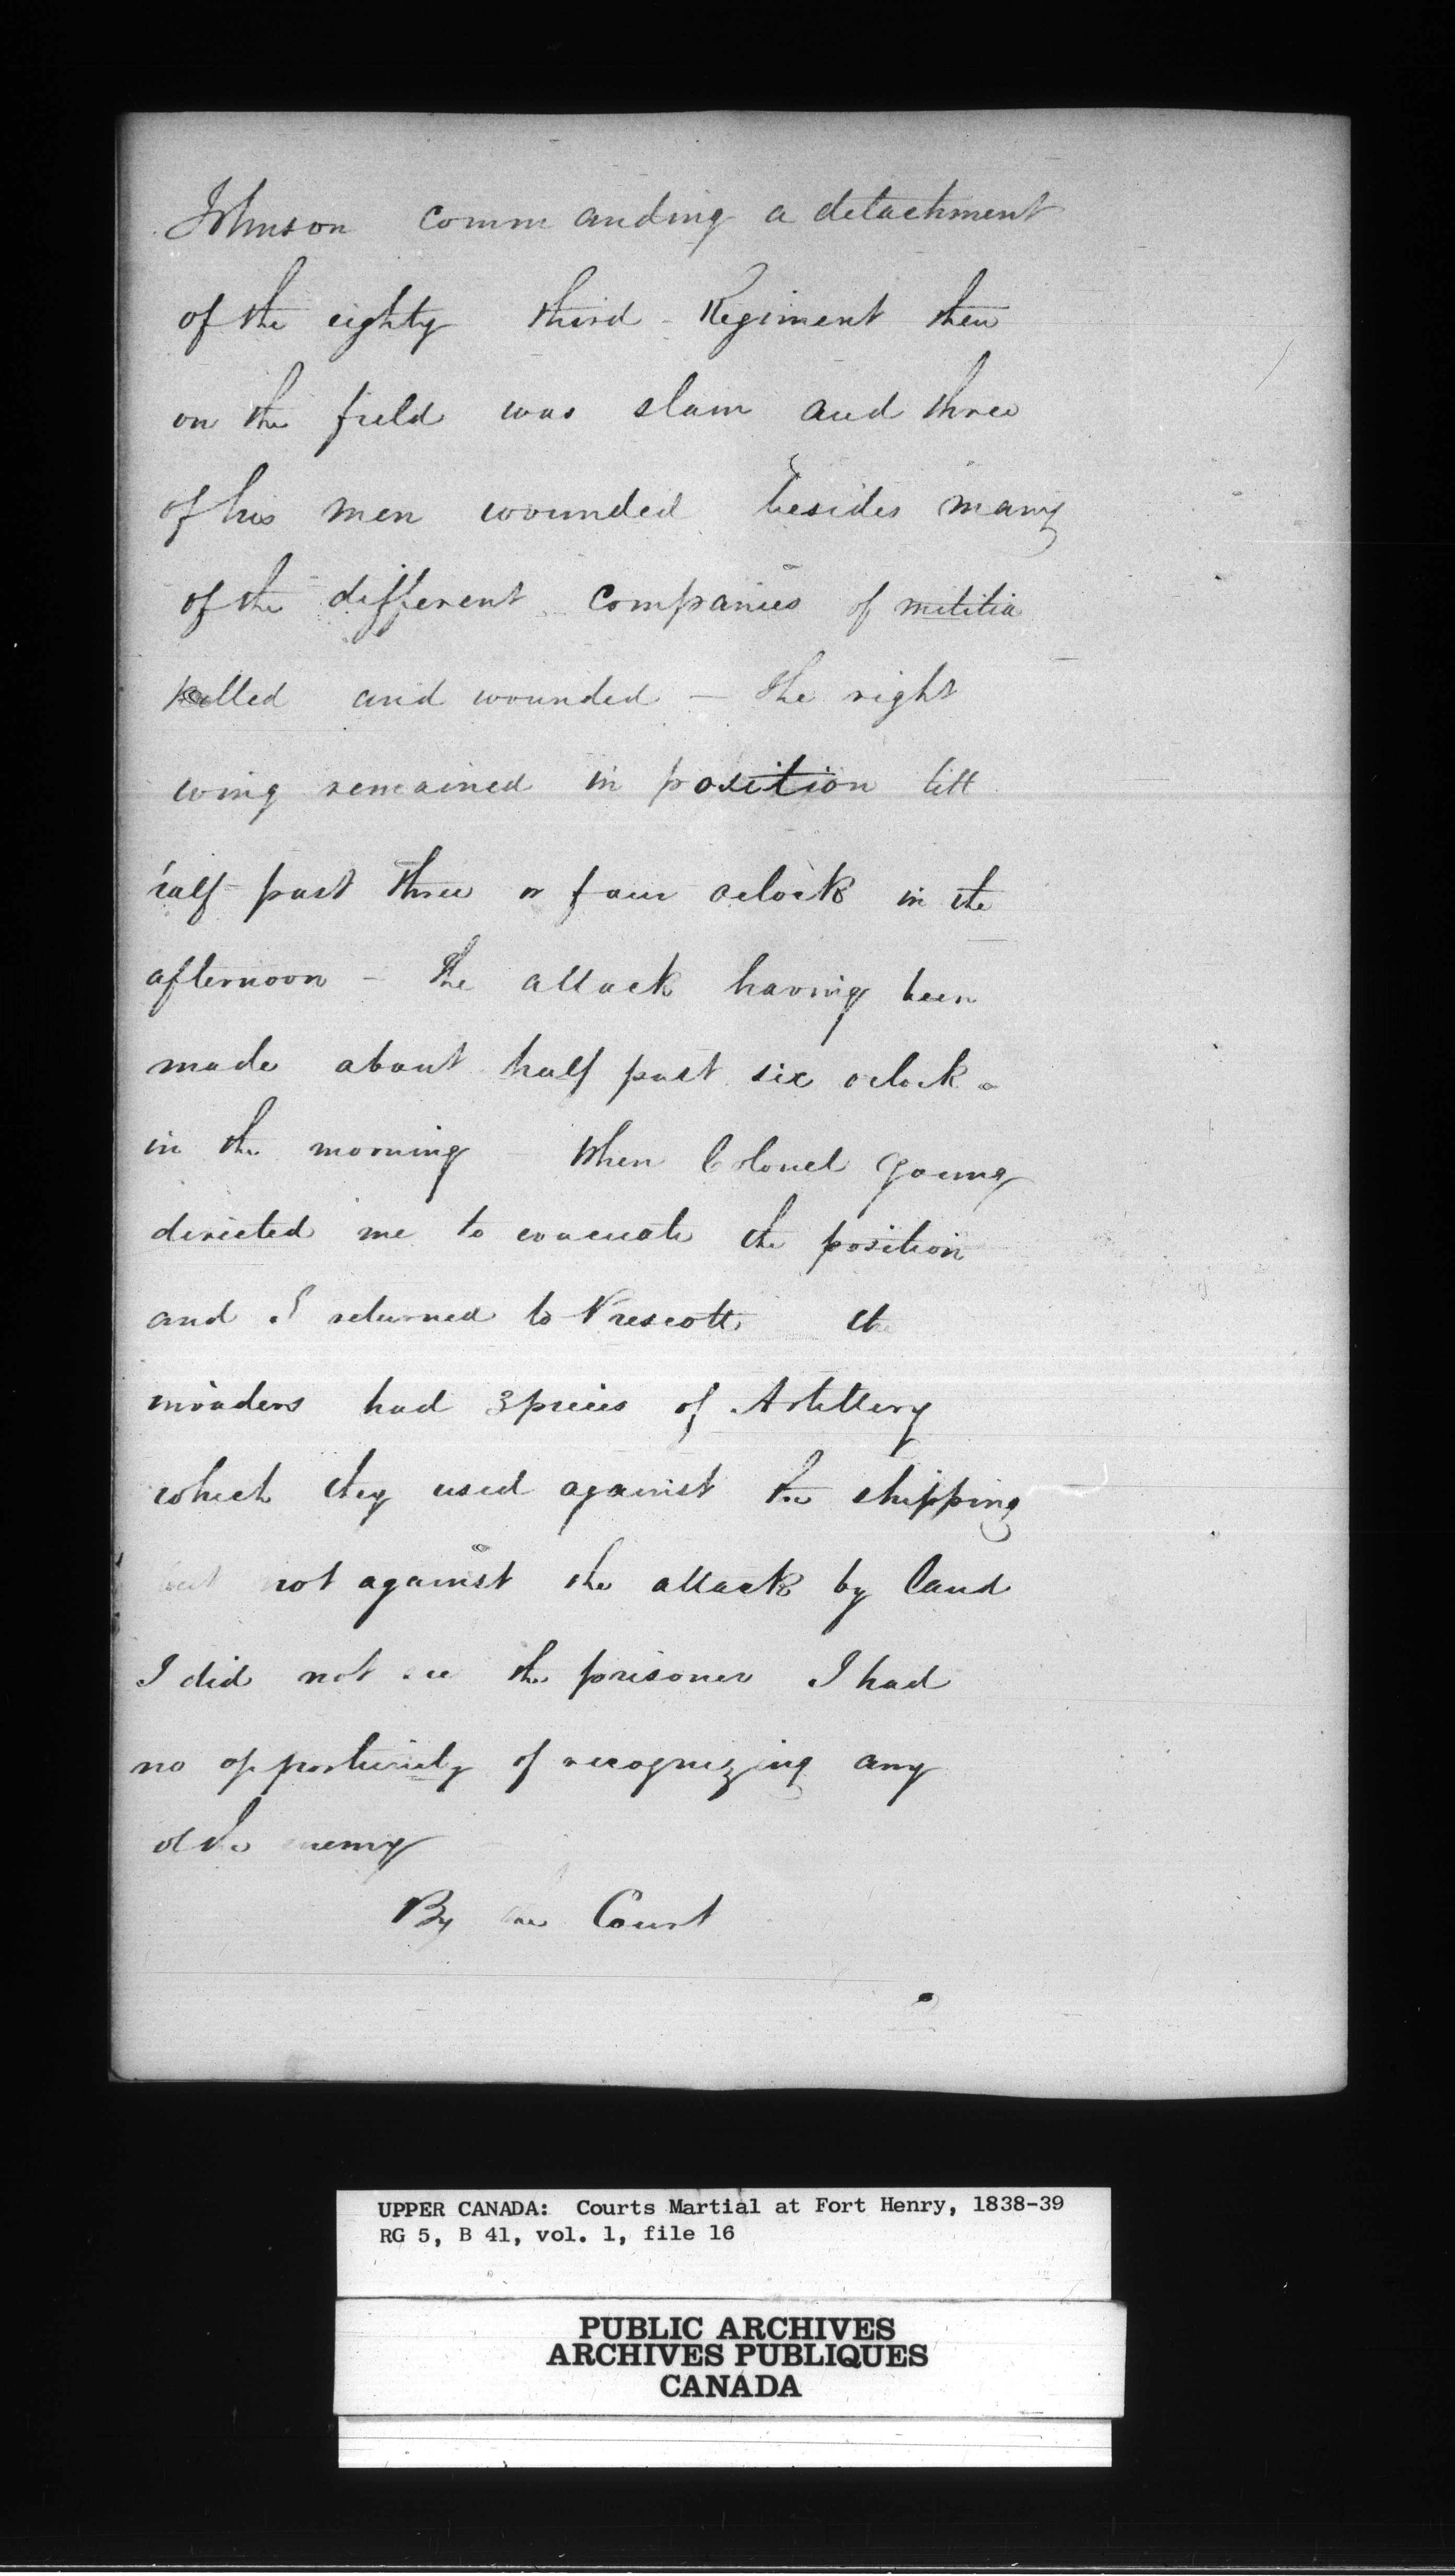 Johnson commanding a detachment
of the eighty third Regiment then
on the field was slain and three
of his men wounded besides many
of the different companies of militia
killed and wounded — the right
wing remained in position till
half past three or four oclock in the
afternoon – the attack having been
made about half past six oclock
in the morning – when Colonel Young
directed me to evacuate the position
and I returned to Prescott the
invaders had 3 pieces of Artillery
which they used against the shipping
but not against the attack by land
I did not see the prisoner I had
no opportunity of recognizing any
of the enemy
By the Court
UPPER CANADA: Courts Martial at Fort Henry, 1838-39
RG 5, B 41, vol. 1, file 16
PUBLIC ARCHIVES
ARCHIVES PUBLIQUES
CANADA